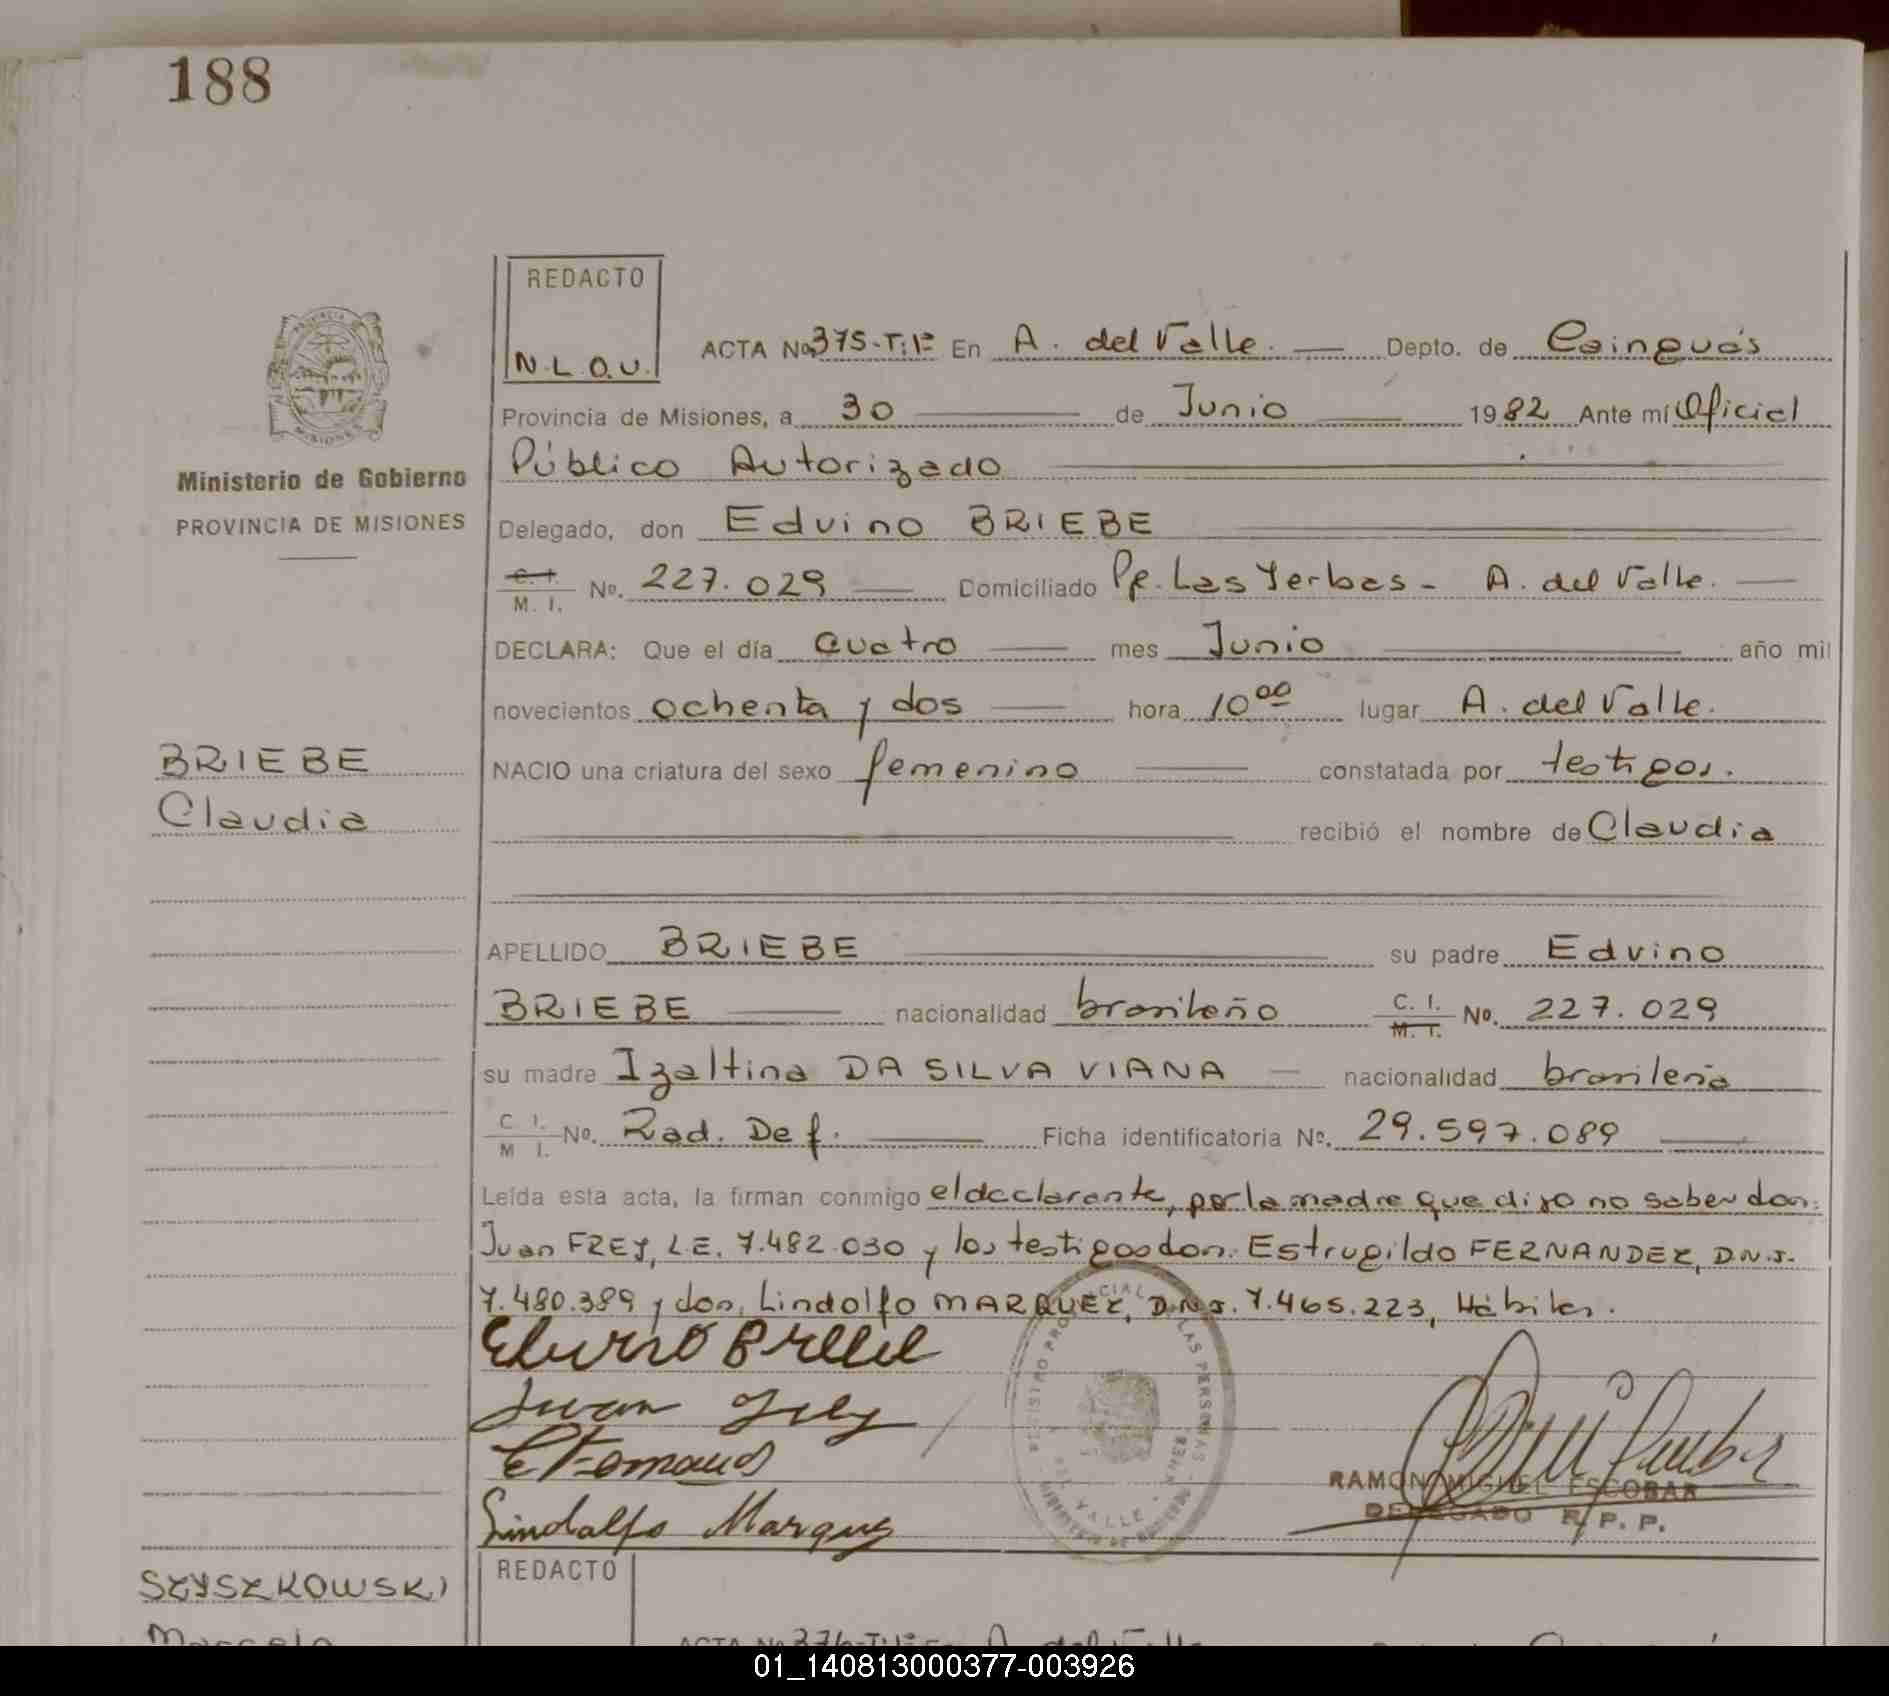 188
REDACTO
N.L.O.U.
ACTA No 375-T:1º En A. del Valle. Depto. de Cainguás
Provincia de Misiones, a 30 de Junio 1982 Ante mí Oficial
Público Autorizado
Ministerio de Gobierno
PROVINCIA DE MISIONES
Delegado, don Edvino BRIEBE
C. I. / M. I. No. 227.029 Domiciliado Pje. Las Yerbas - A. del Valle.
DECLARA: Que el día cuatro mes Junio año mil
novecientos ochenta y dos hora 10 00 lugar A. del Valle.
BRIEBE
Claudia
NACIO una criatura del sexo femenino constatada por testigos.
recibió el nombre de Claudia
APELLIDO BRIEBE su padre Edvino
BRIEBE nacionalidad brasileño C. I. / M. I. No. 227.029
su madre Izaltina DA SILVA VIANA nacionalidad brasileña
C. I. / M. I. No. Rad. Def. Ficha identificatoria No. 29.597.089
Leída esta acta, la firman conmigo el declarante, por la madre que dijo no saber don:
Juan FREY, L.E. 7.482.030 y los testigos don: Estrugildo FERNANDEZ, D.N.I.
7.480.389 y don, Lindolfo MARQUEZ, D.N.I. 7.465.223, Hábiles.
Juan Frey
Lindolfo Marques
RAMON MIGUEL ESCOBAR
DELEGADO R. P. P.
SZYSZKOWSKI
Marcelo
REDACTO
ACTA No 376-T:1º En A. del Valle
01_140813000377-003926